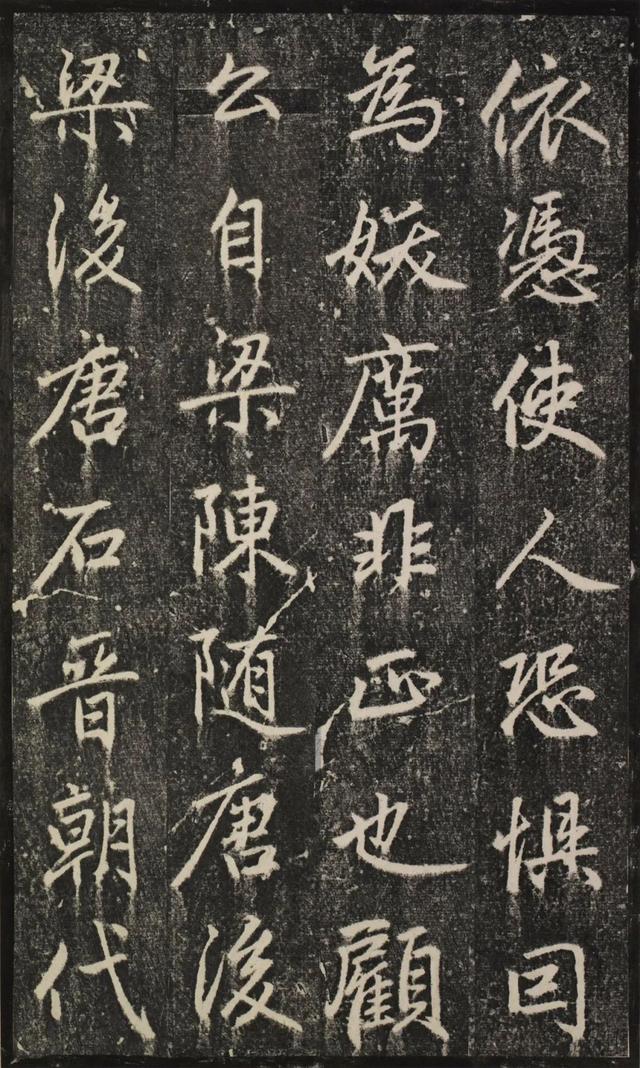 依憑使人恐懼曰
為妖厲非正也顧
公自梁陳随唐後
梁後唐石晉朝代